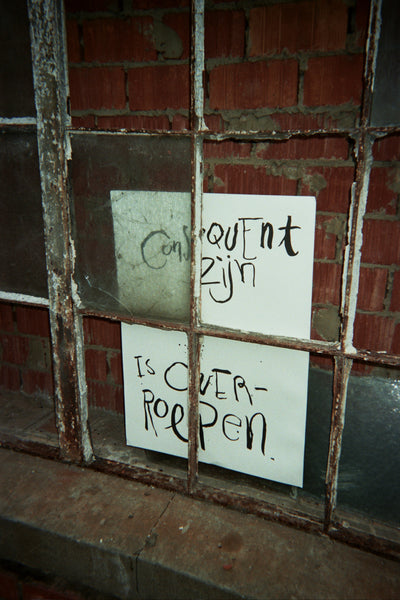 ConsEQUEnt
zijn
Is OVER-
RoEpen.